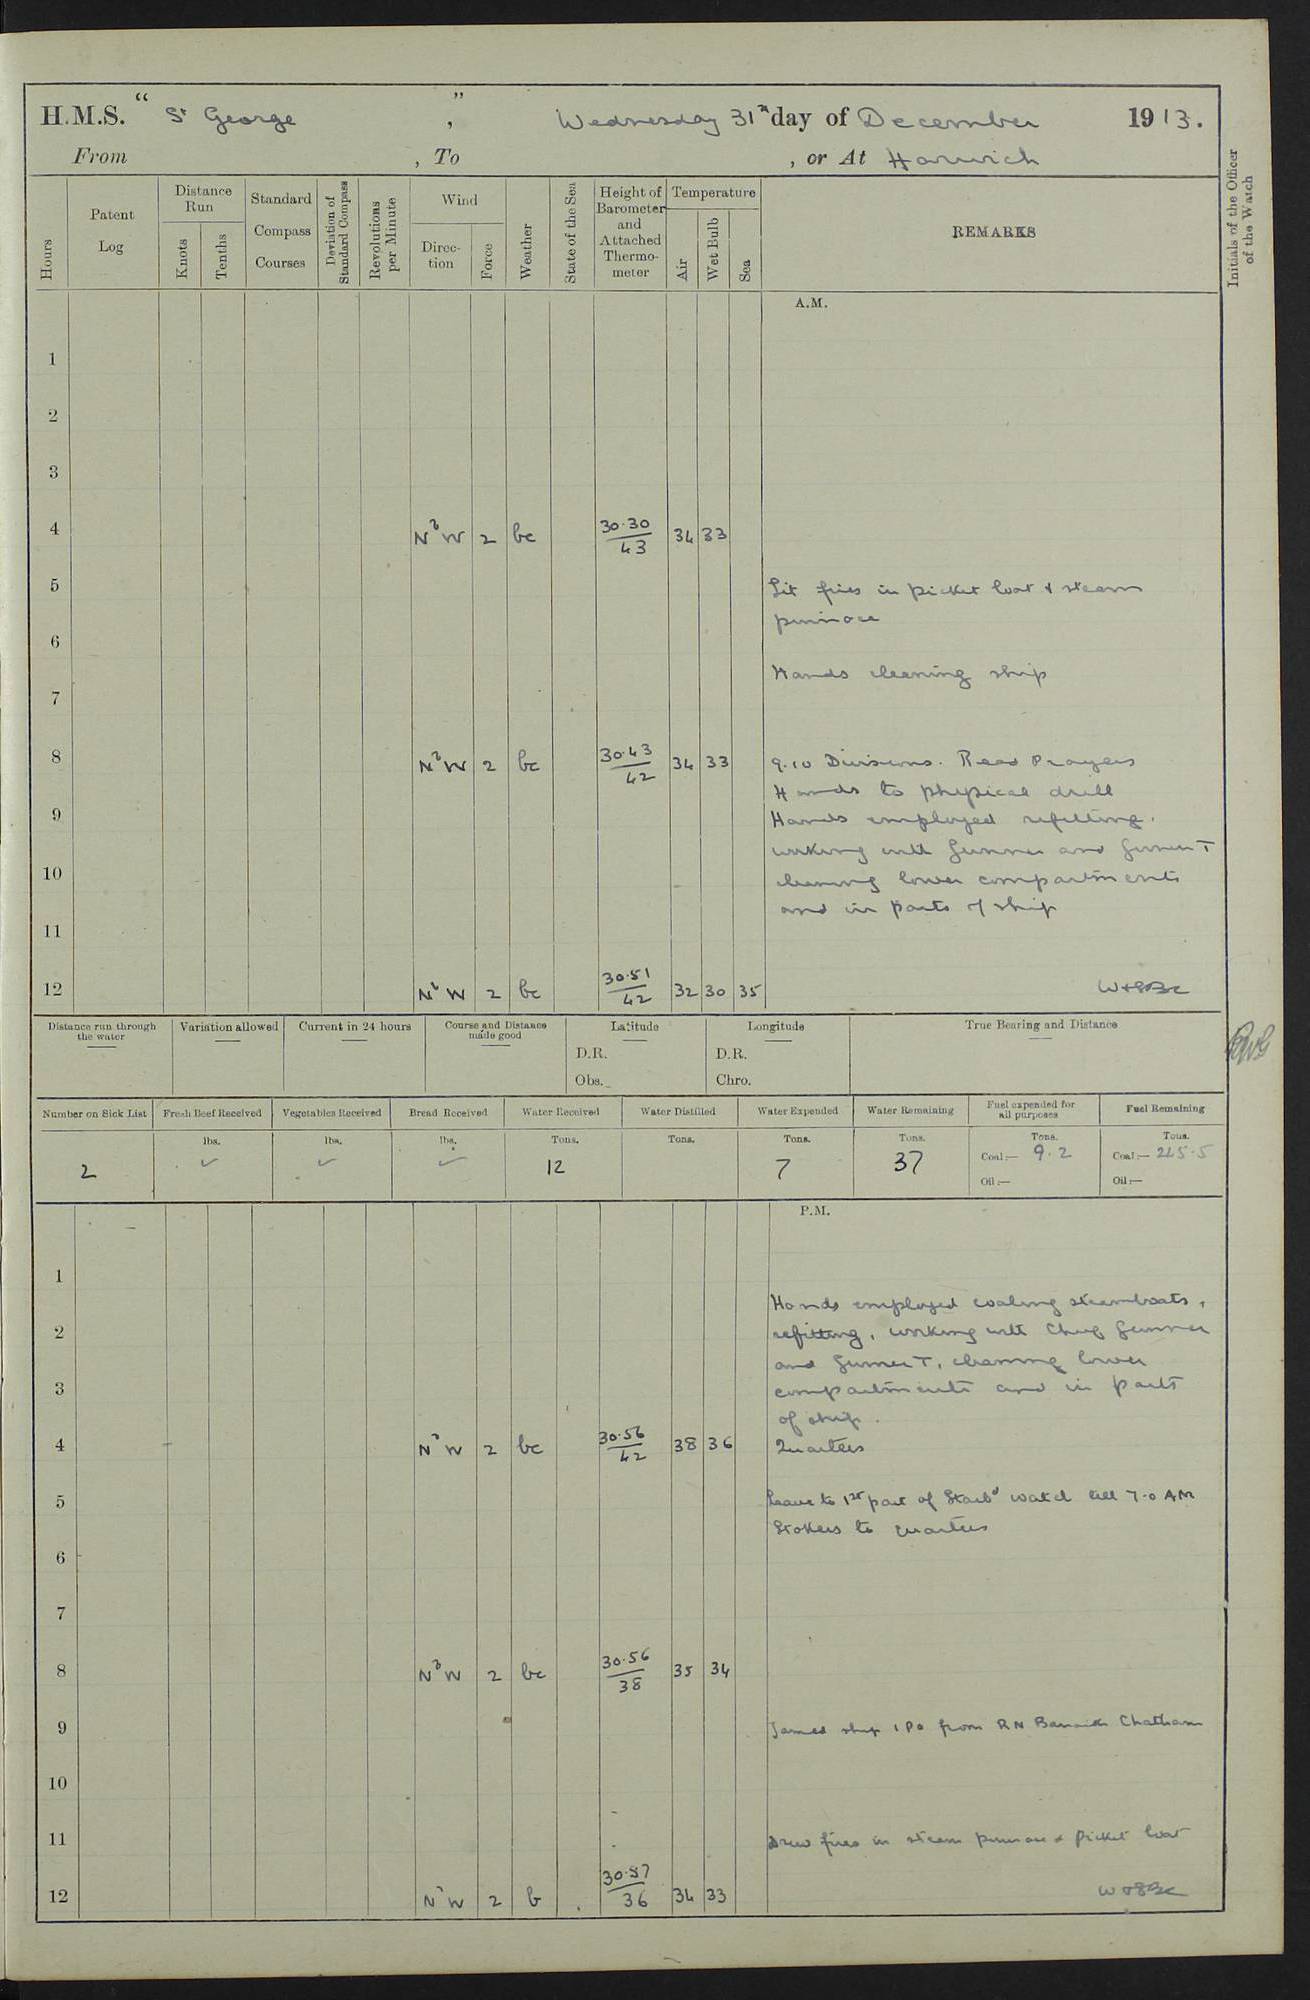 H.M.S. "St George", Wednesday 31st day of December 1913.
From , To , or At Harwich
Hours
Patent Log
Distance Run
Knots
Tenths
Standard Compass Courses
Deviation of Standard Compass
Revolutions per Minute
Wind
Direction
Force
Weather
State of the Sea
Height of Barometer and Attached Thermometer
Temperature
Air
Wet Bulb
Sea
REMARKS
Initials of the Officer of the Watch
A.M.
1
2
3
4 NbW 2 bc 30.30/43 34 33
5 Lit fires in picket boat & steam
pinnace
6
Hands cleaning ship
7
8 NbW 2 bc 30.43/42 34 33 9.10 Divisions. Read Prayers
Hands to physical drill
9 Hands employed refitting.
working with Gunner and Gunner T
10 cleaning lower compartments
and in parts of ship
11
12 NbW 2 bc 30.51/42 32 30 35
Distance run through the water
Variation allowed
Current in 24 hours
Course and Distance made good
Latitude
D.R.
Obs.
Longitude
D.R.
Chro.
True Bearing and Distance
Number on Sick List
Fresh Beef Received
Vegetables Received
Bread Received
Water Received
Water Distilled
Water Expended
Water Remaining
Fuel expended for all purposes
Fuel Remaining
lbs. lbs. lbs. Tons. Tons. Tons. Tons. Tons. Tons.
2 ✓ ✓ ✓ 12 7 37 Coal:— 9.2 Coal:— 245.5
Oil:— Oil:—
P.M.
1
Hands employed coaling steamboats,
2 refitting, working with Chief Gunner
and Gunner T, cleaning lower
3 compartments and in parts
of ship.
4 NbW 2 bc 30.56/42 38 36 Quarters
5 Leave to 1st part of Starbd watch till 7.0 AM
Stokers to quarters
6
7
8 NbW 2 bc 30.56/38 35 34
9 Joined ship 1 PO from RN Barracks Chatham
10
11 Drew fires in steam pinnace & Picket boat
12 NbW 2 b 30.57/36 34 33